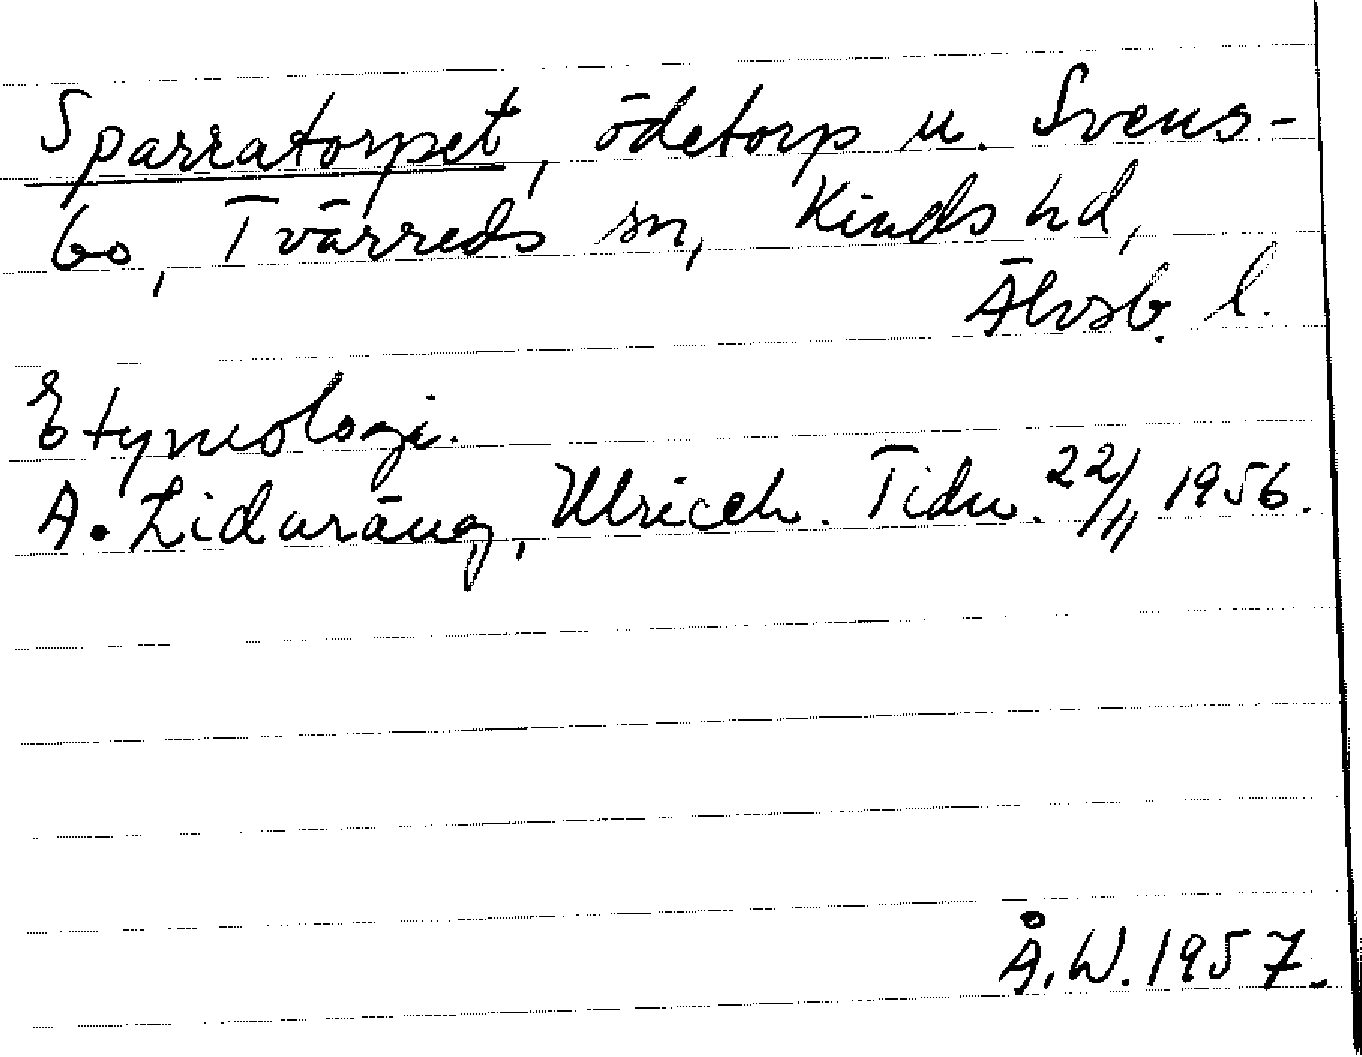 Sparratorpet, ödetorp u. Svens-
bo, Tvärreds sn, Kinds hd,
Älvsb. l.
Etymologi.
A. Lidaräng, Ulriceh. Tidn. 22/11 1956.
Å. W. 1957.